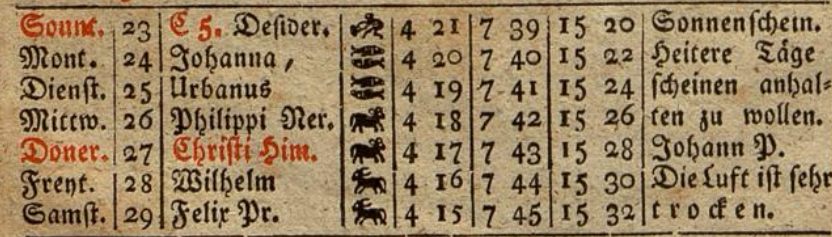 Sonnt. 23 C 5. Desider. 4 21 7 39 15 20 Sonnenschein.
Mont. 24 Johanna, 4 20 7 40 15 22 Heitere Täge
Dienst. 25 Urbanus 4 19 7 41 15 24 scheinen anhal=
Mittw. 26 Philippi Ner. 4 18 7 42 15 26 ten zu wollen.
Doner. 27 Christi Him. 4 17 7 43 15 28 Johann P.
Freyt. 28 Wilhelm 4 16 7 44 15 30 Die Luft ist sehr
Samst. 29 Felix Pr. 4 15 7 45 15 32 trocken.